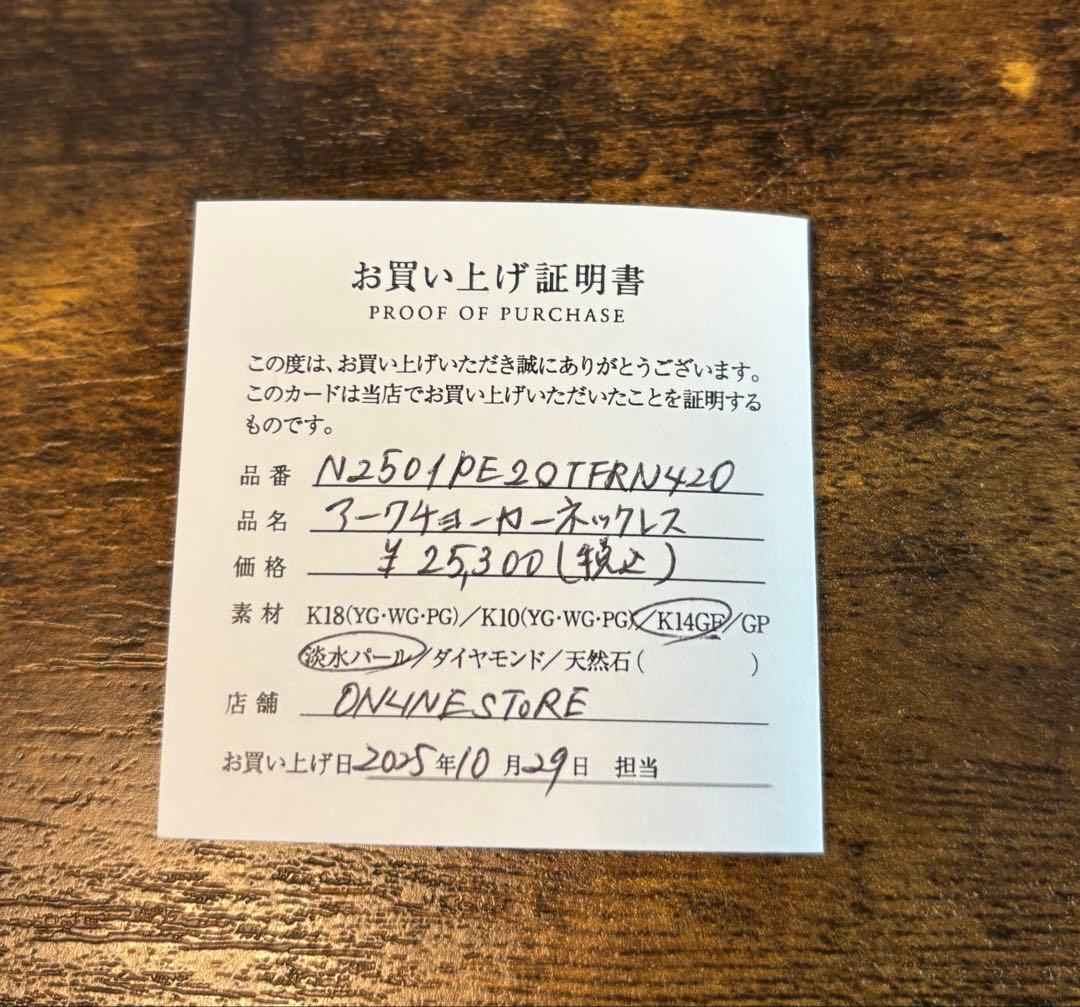 お買い上げ証明書
PROOF OF PURCHASE
この度は、お買い上げいただき誠にありがとうございます。
このカードは当店でお買い上げいただいたことを証明する
ものです。
品番 N2501PE20TFRN420
品名 アークチョーカーネックレス
価格 ¥25,300(税込)
素材 K18(YG·WG·PG)/K10(YG·WG·PG)/K14GF/GP
淡水パール/ダイヤモンド/天然石( )
店舗 ONLINESTORE
お買い上げ日2025年10月29日 担当